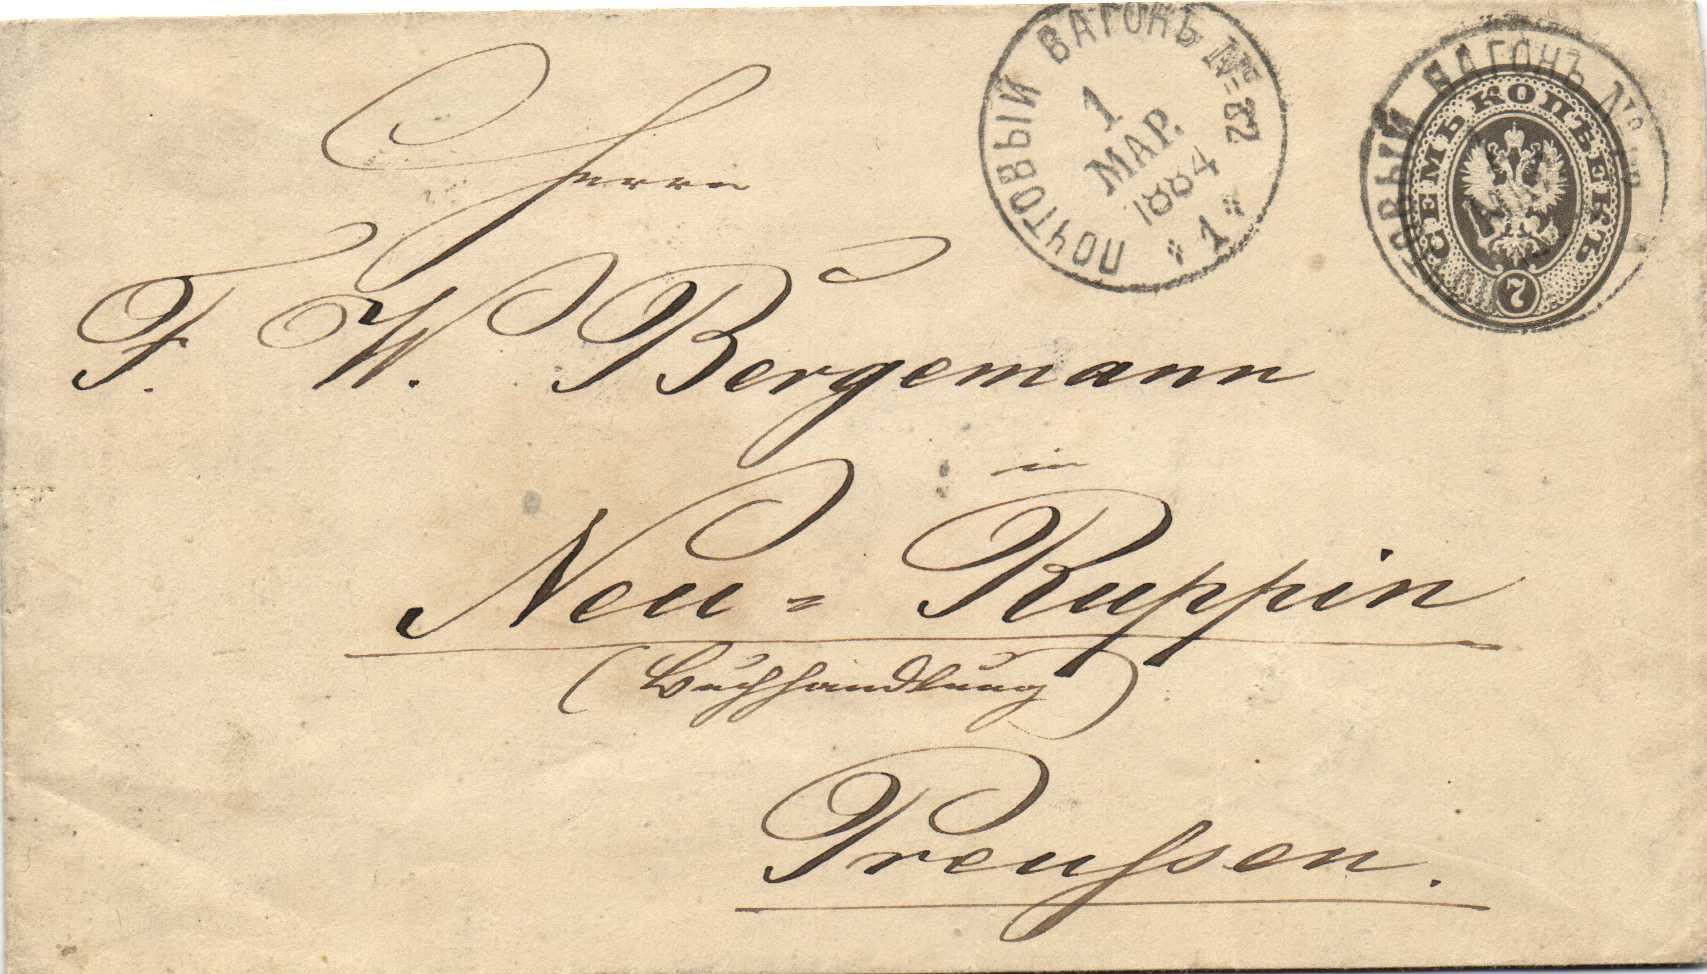 ПОЧТОВЫЙ ВАГОНЪ № 82
1
МАР.
1884
* 1 *
ВАГОНЪ №
СЕМЬ КОПѢЕКЪ
7
Herrn
F. W. Bergemann
in
Neu=Ruppin
(Buchhandlung)
Preußen.